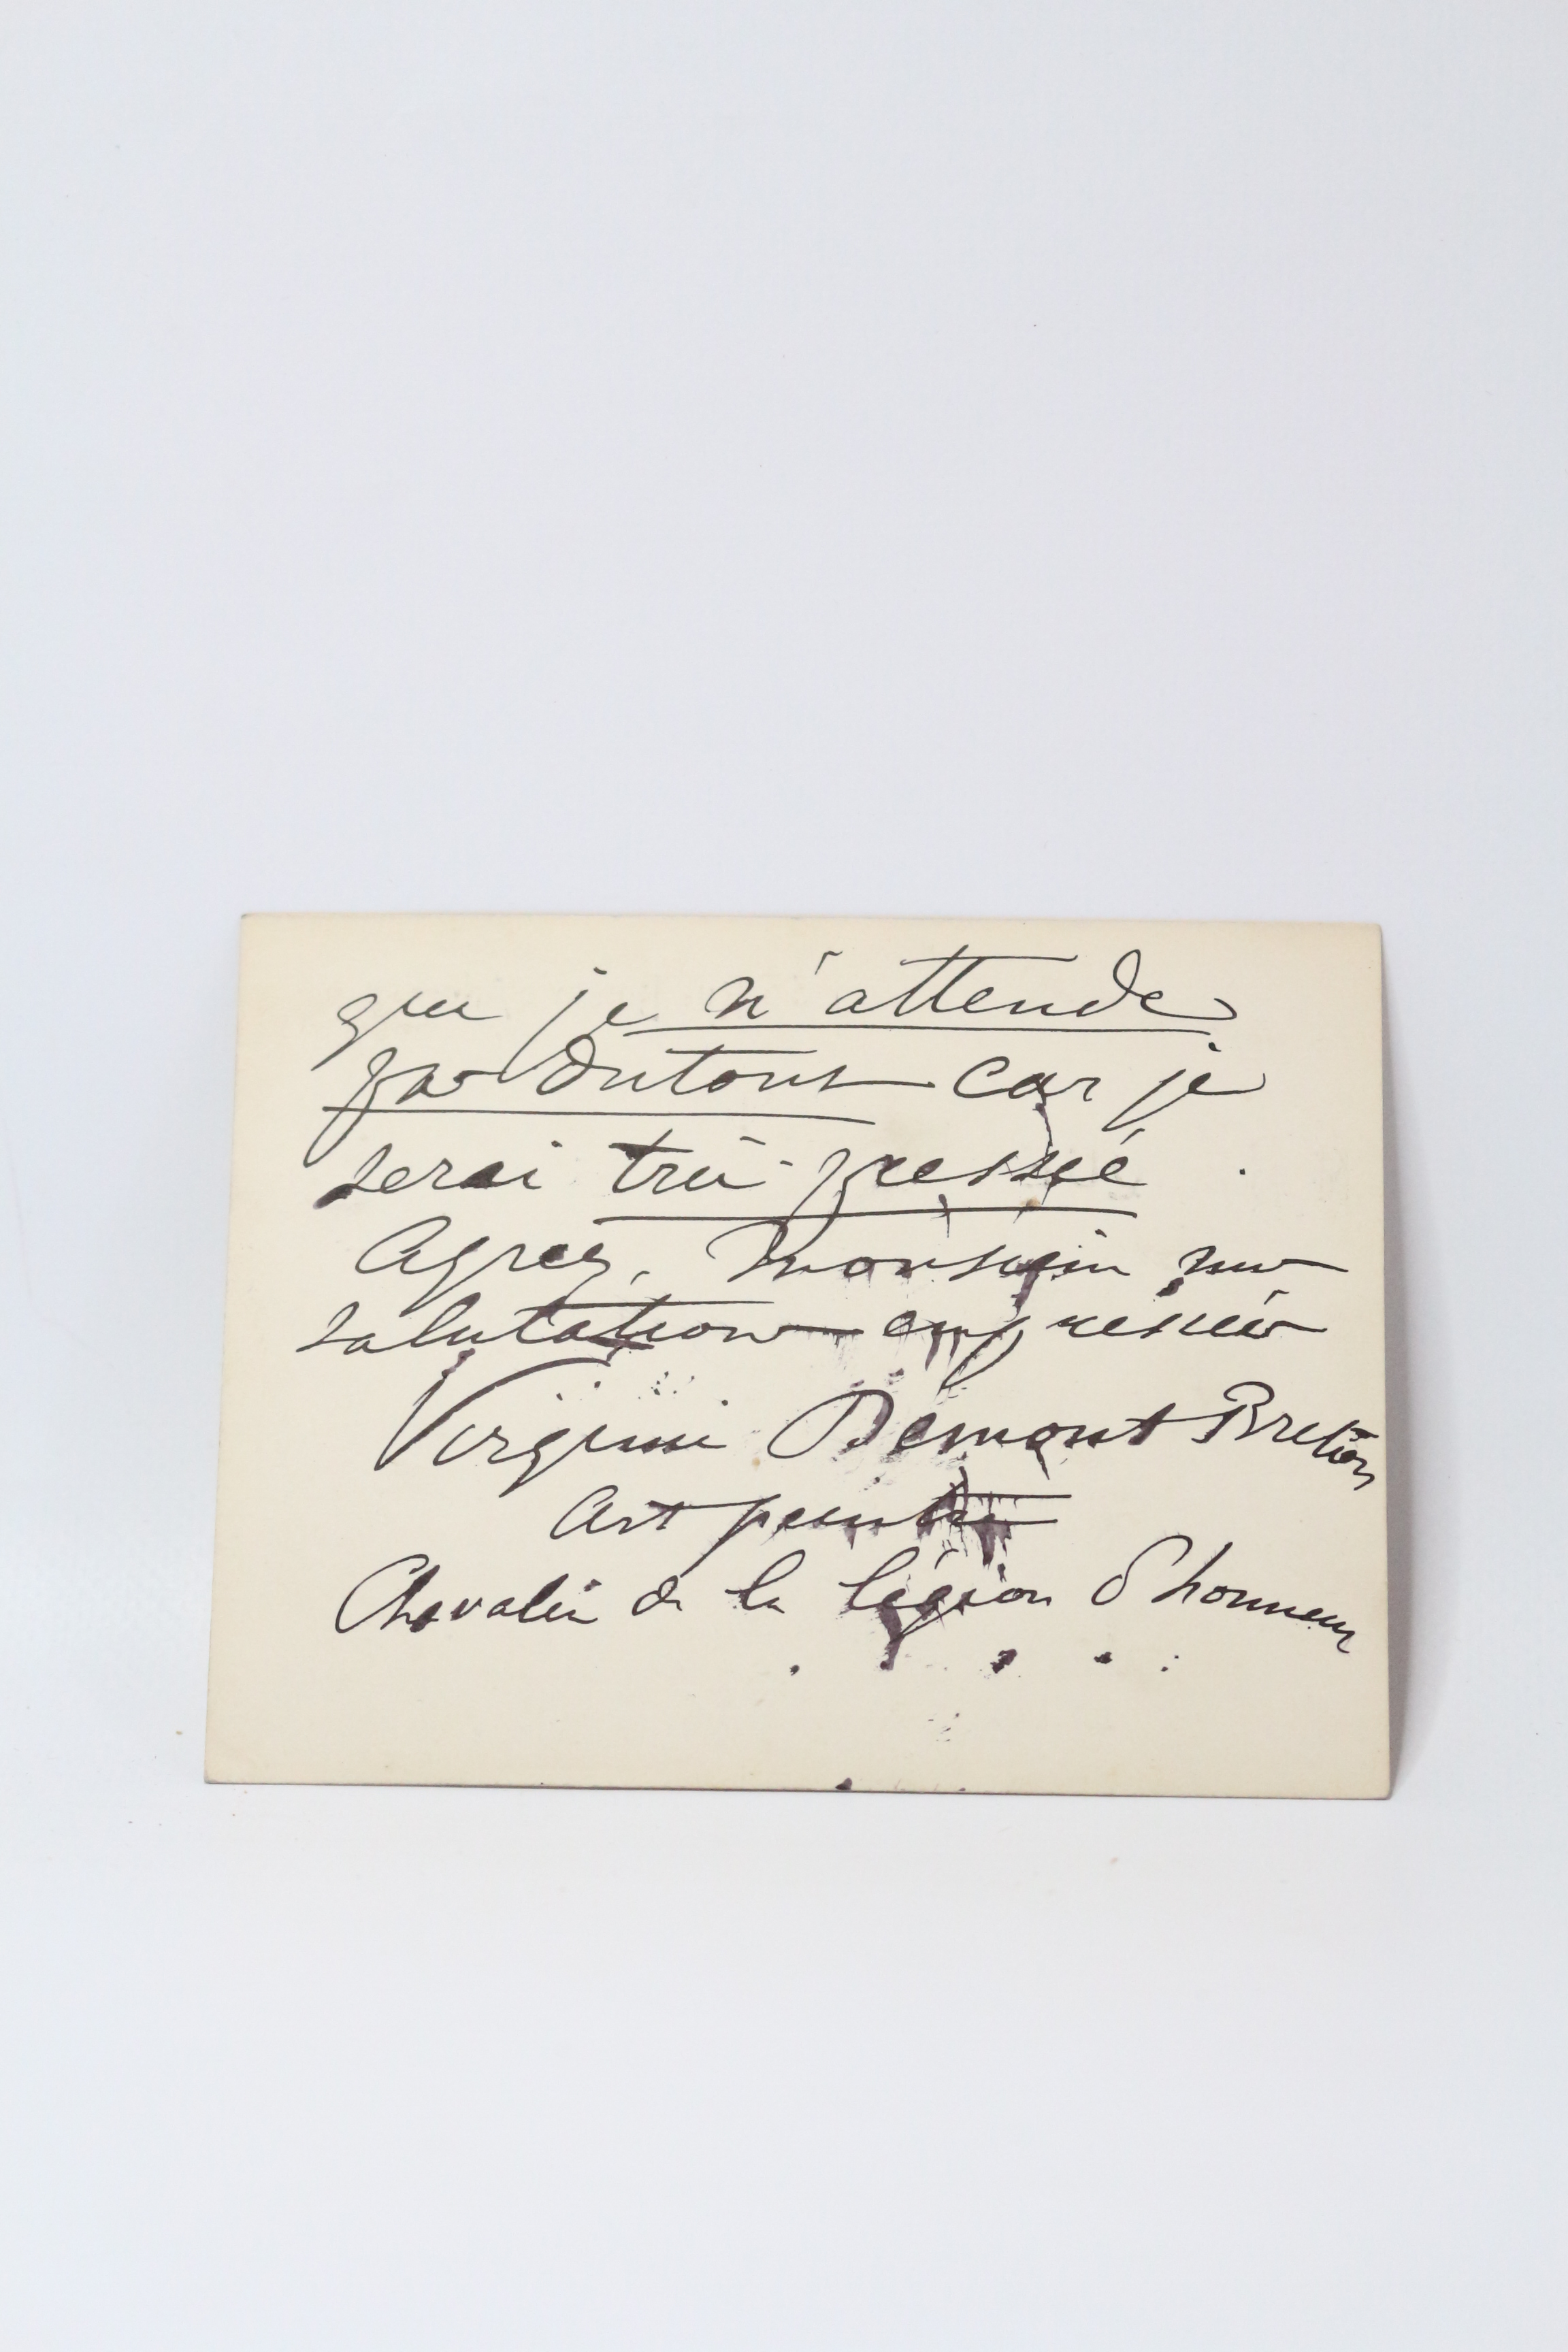 que je n'attende
pas du tout car je
serai très pressée.
Agréez, Monsieur mes
salutations empressées
Virginie Demont Breton
Art peintre
Chevalier de la légion d'honneur